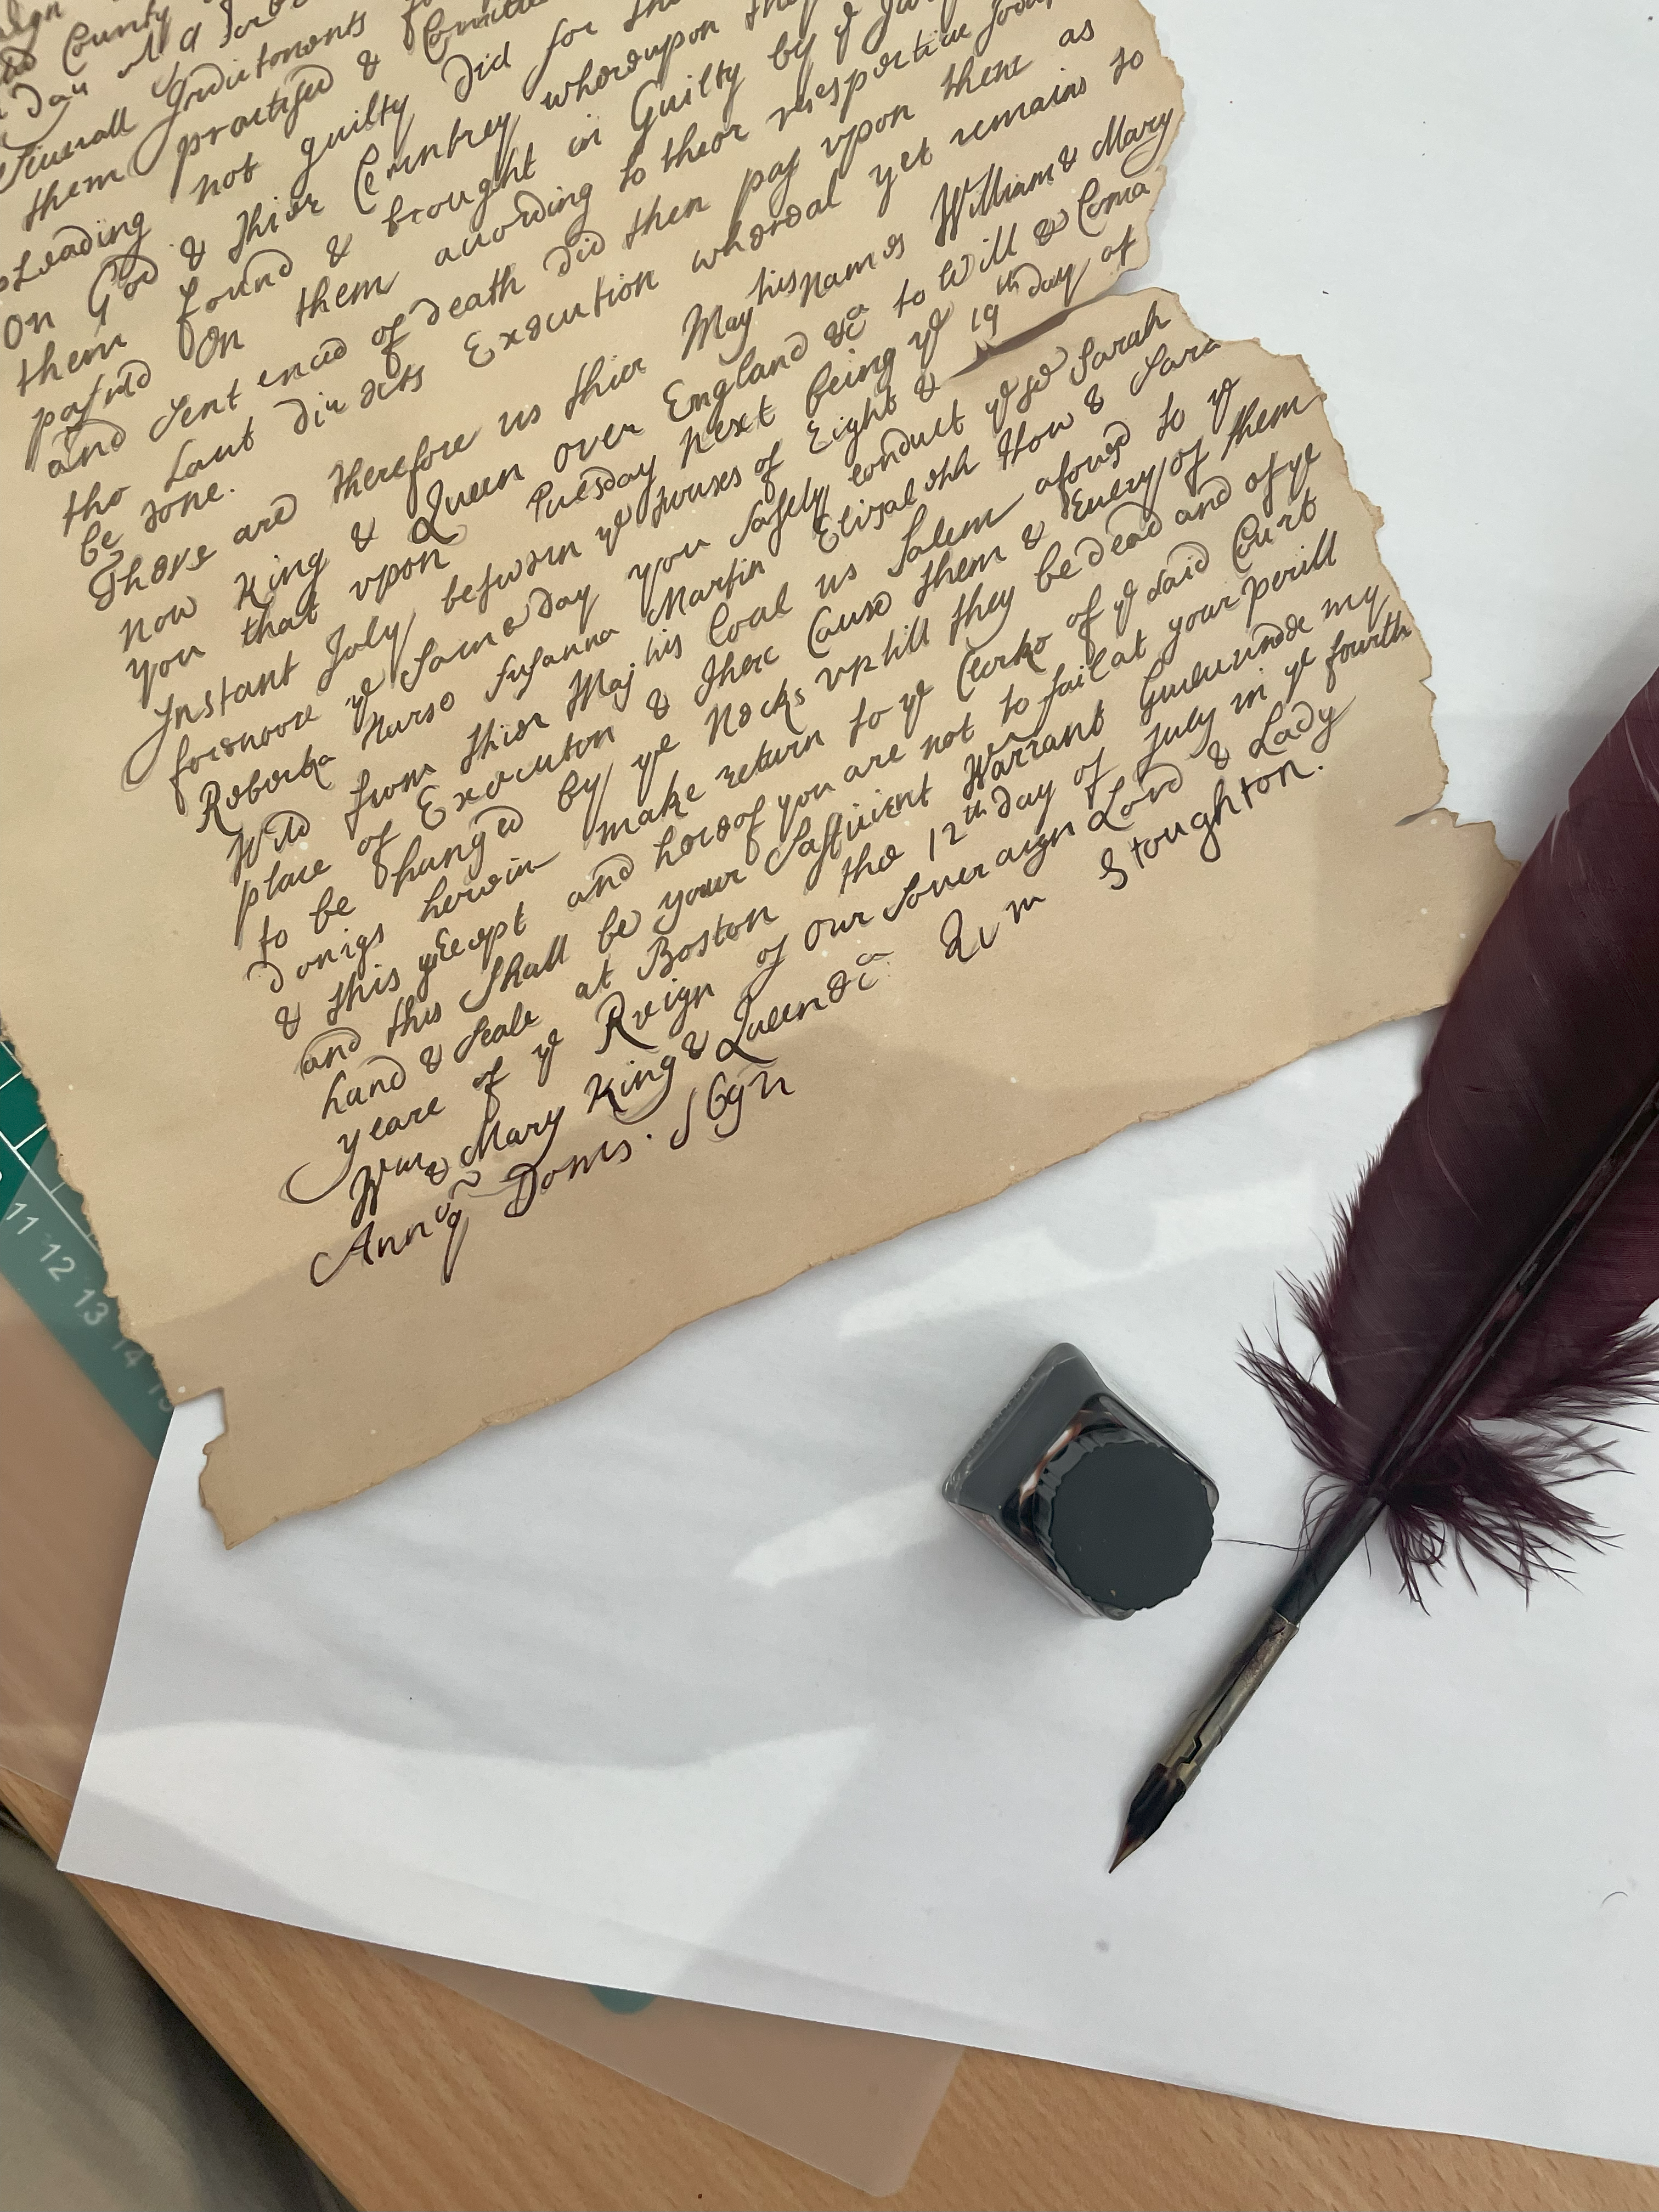 County
Day
Seuerall Indictments
them practised & Comitted
pLeading not guilty did for
On God & Thier Countrey wherupon they
them found & brought in Guilty by ye Jury
passed On them according to their respective
and Sent enced of death did then pas upon them as
tho Laut directs Execution whereal yet remains to
be done.
Those are Therefore us thier May his names William & Mary
now King & Queen over England &ca to Will & Coma
you that vpon Tuesday next being ye 19th day of
Instant July between ye houses of Eight &
forenoone ye Same Day you Safely conduct yese Sarah
Robecka Nurse Susanna Martin Elizabeth How & Sara
Wild from thier Maj his Goal us Salem afoused to ye
place of Execution & there Cause them & Euery of them
to be hanged by ye Necks vntill they be dead and of ye
Donigs herein make return to ye Clerke of ye said Curt
& this precept and hereof you are not to fail at your perill
and this Shall be your Suffuient Warrant Guiuvnde my
hand & Seale at Boston the 12th day of July in ye fourth
yeare of ye Reign of our Soueraign Lord & Lady
Wm & Mary King & Queen &ca Wm Stoughton.
Annoq Doms. 1692
11 12 13 14 15